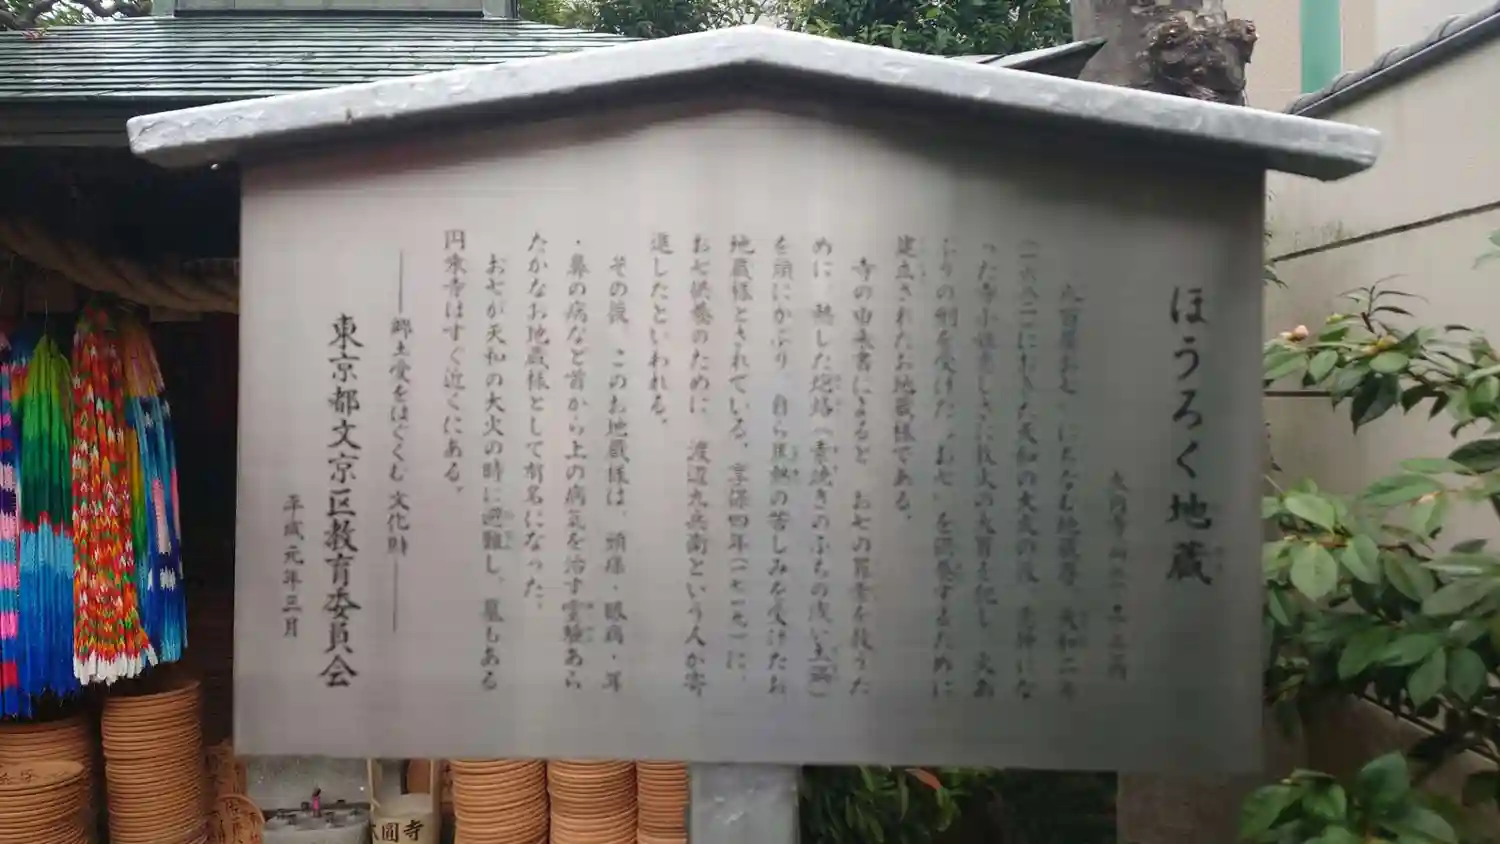 ほうろく地蔵
大円寺
八百屋お七にちなむ地蔵尊。天和二年
(一六八二)におきた天和の大火の後、恋仲にな
った寺小姓恋しさに放火の大罪を犯し、火あ
ぶりの刑を受けた“お七”を供養するために
建立されたお地蔵様である。
寺の由来書によると、お七の罪業を救うた
めに、熱した炮烙(素焼きのふちの浅い土鍋)
を頭にかぶり、自ら焦熱の苦しみを受けたお
地蔵様とされている。享保四年(一七一九)に、
お七供養のために、渡辺九兵衛という人が寄
進したといわれる。
その後、このお地蔵様は、頭痛・眼病・耳
・鼻の病など首から上の病気を治す霊験あら
たかなお地蔵様として有名になった。
お七が天和の大火の時に避難し、墓もある
円乗寺はすぐ近くにある。
――郷土愛をはぐくむ文化財――
東京都文京区教育委員会
平成元年三月
大圓寺